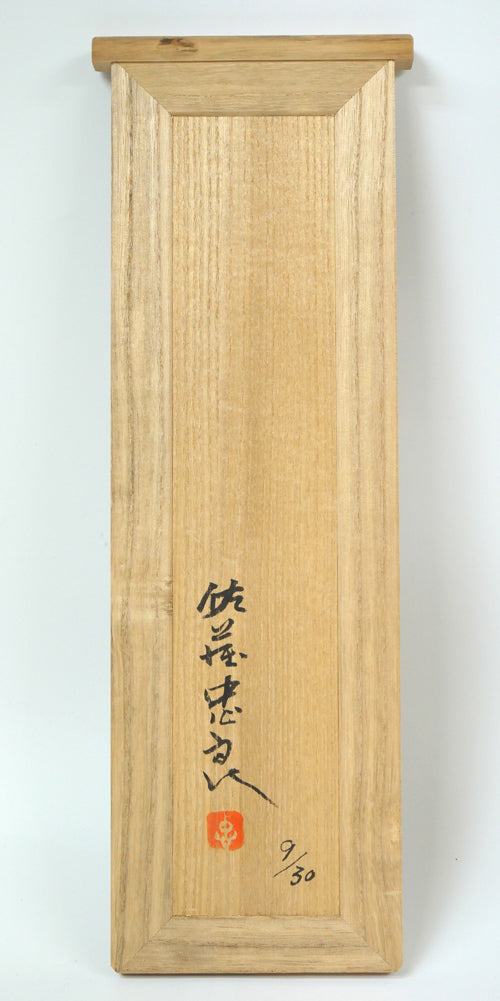 佐藤忠良
9/30